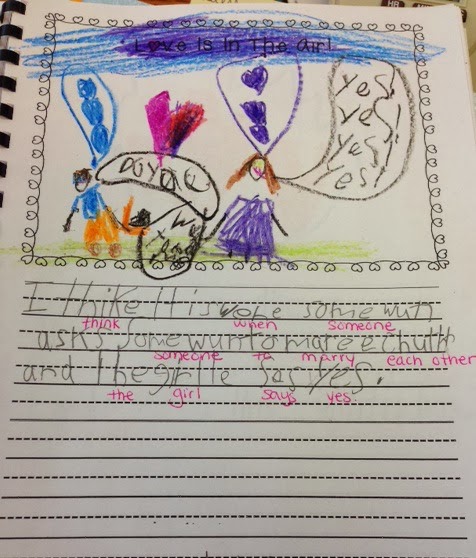 Love Is In The Air!
Yes!
Yes!
Yes!
Yes!
I thike It is wene some wun
think when someone
asks Some wun to mare echuthr
someone to marry each other
and the grlle Sas Yes.
the girl says yes